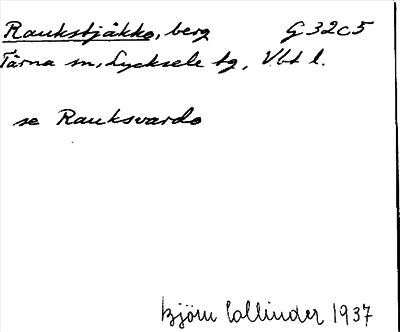 Raukstjåkko, berg G 32c5
Tärna sn, Lycksele tg, Vbt l.
se Rauksvardo
Björn Collinder 1937